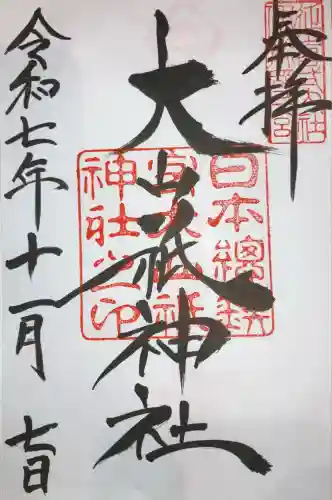 奉拝
大山祇神社
日本總鎮
守大山祇
神社之印
令和七年十一月七日